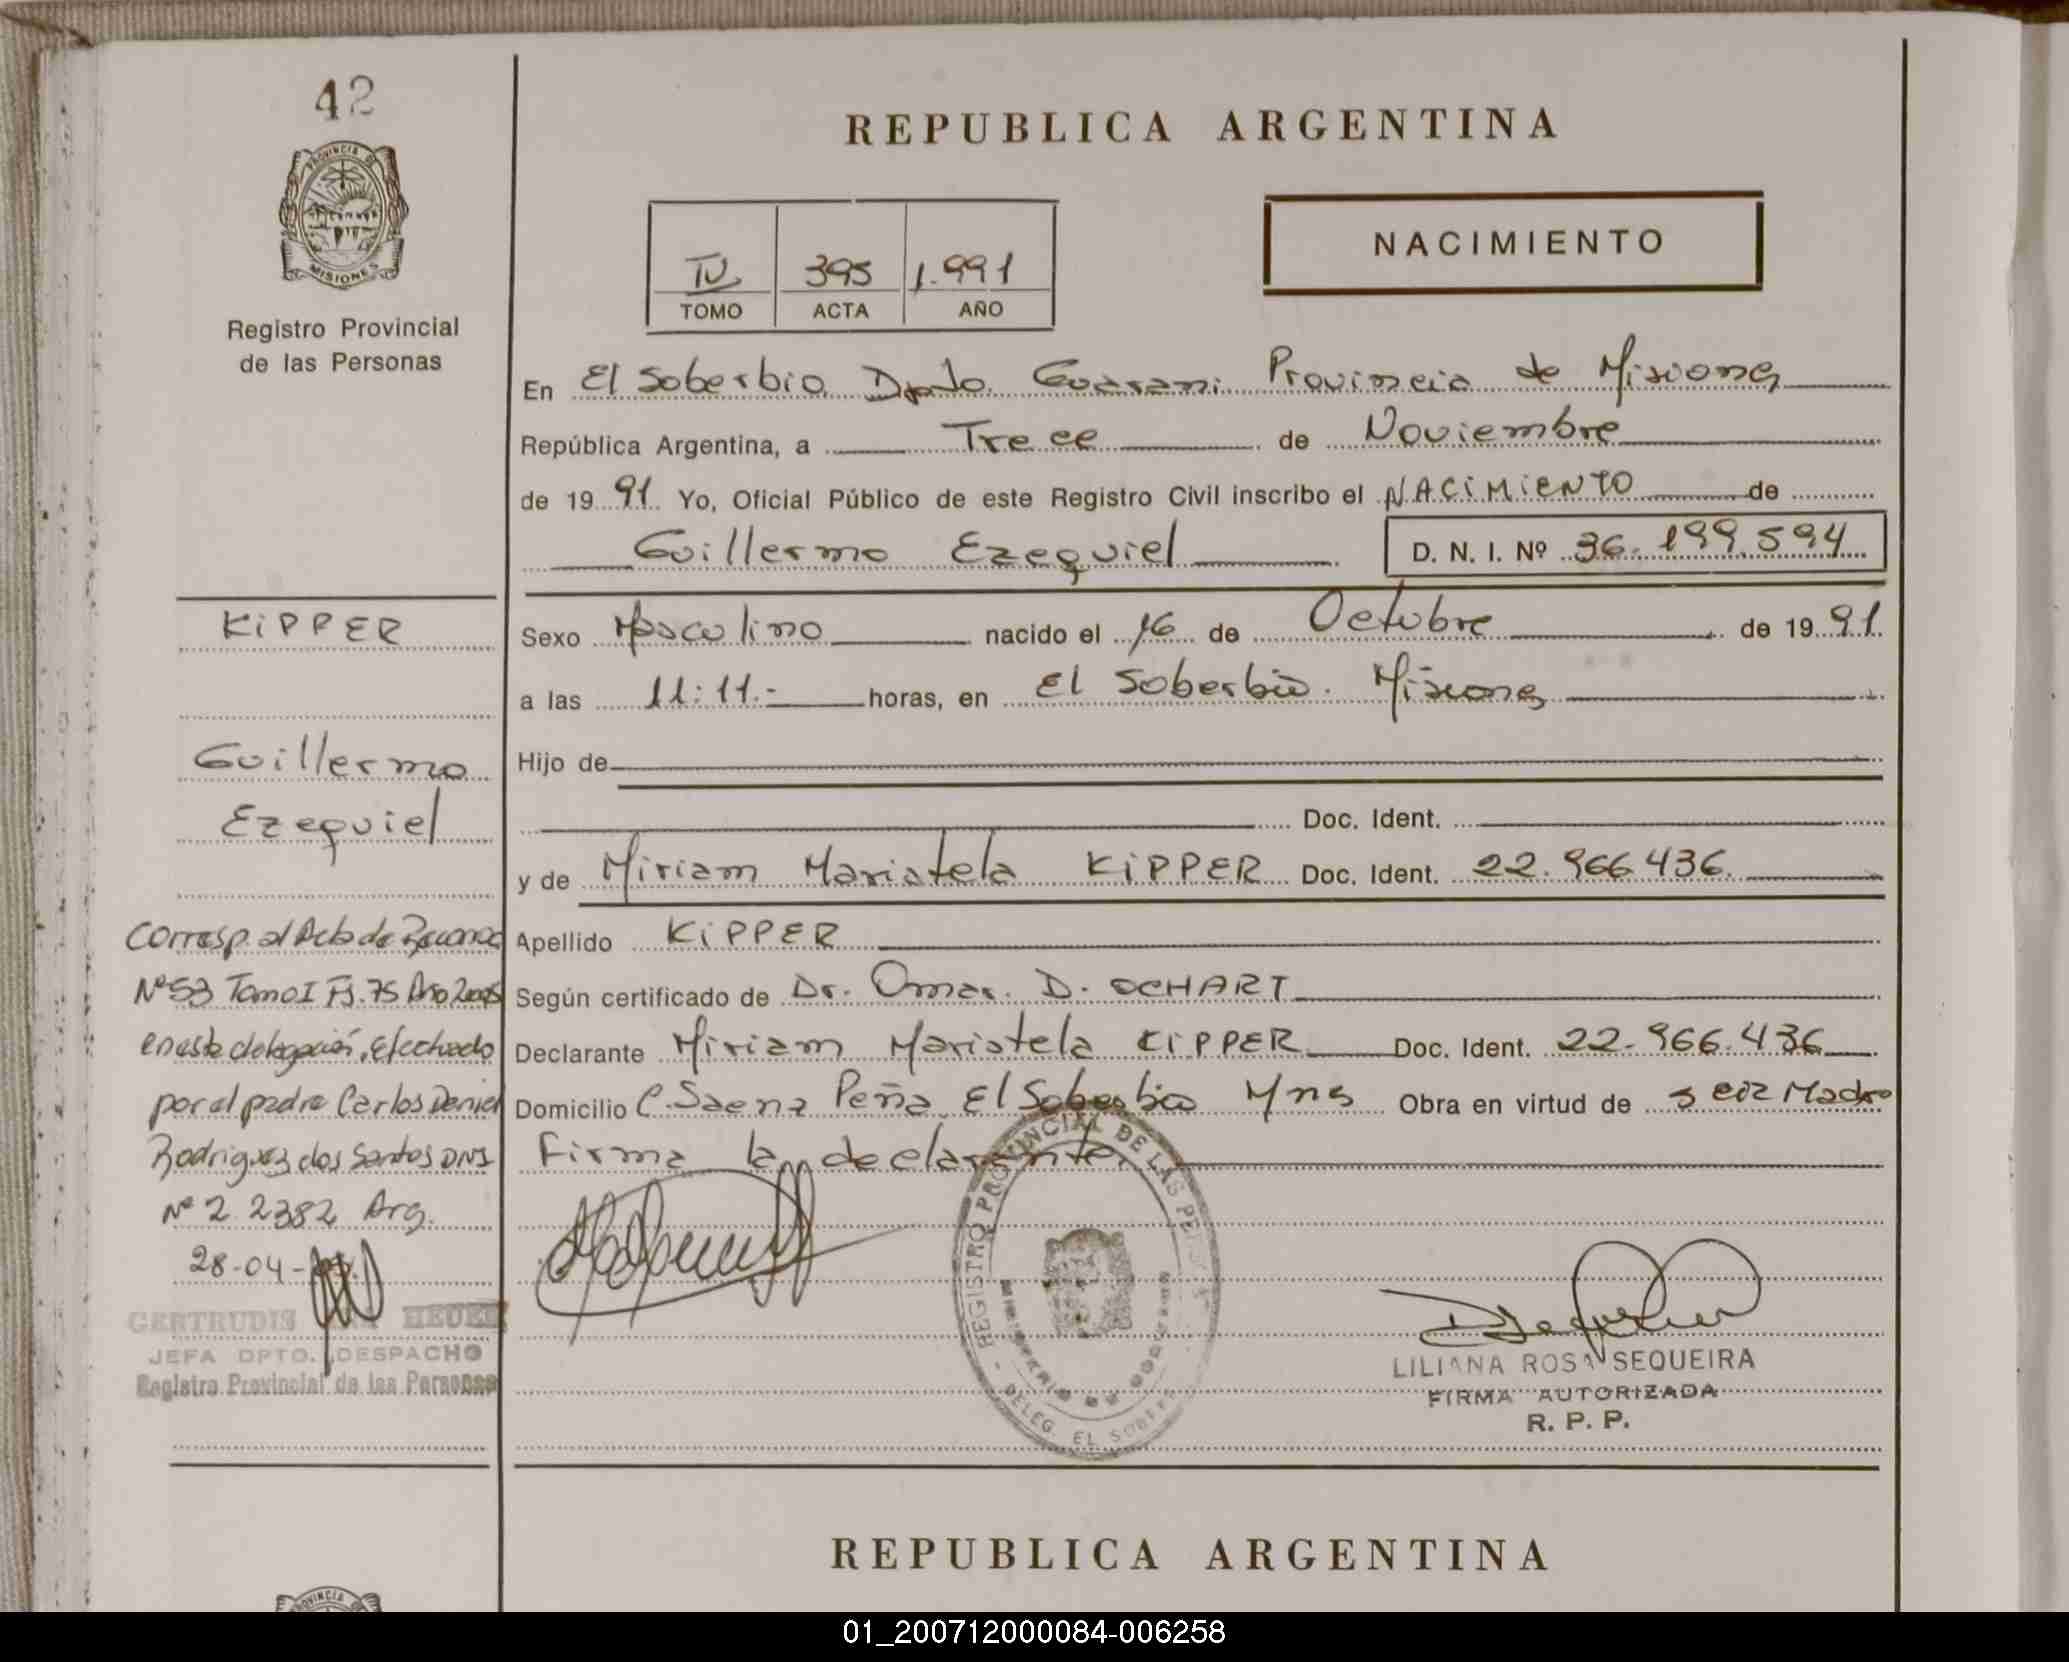 42
PROVINCIA DE
MISIONES
Registro Provincial
de las Personas
KiPPER
Guillermo
Ezequiel
Corresp. al Acta de Reconoc
Nº 53 Tomo I Fs. 75 Año
en esta delegación, efectuado
por el padre Carlos Daniel
Rodriguez dos Santos DNI
Nº 2 2382 Arg.
28-04-
GERTRUDIS
JEFA DPTO. DESPACHO
Registro Provincial de las Personas
REPUBLICA ARGENTINA
NACIMIENTO
395 1.991
TOMO ACTA AÑO
En El Soberbio Dpto. Guarani Provincia de Misiones
República Argentina, a Trece de Noviembre
de 19 91 Yo, Oficial Público de este Registro Civil inscribo el NACiMiENTO de
Guillermo Ezequiel D. N. I. Nº 36.199.594
Sexo Masculino nacido el 16 de Octubre de 19 91
a las 11:11.- horas, en El Soberbio. Misiones
Hijo de
Doc. Ident.
y de Miriam Maristela KiPPER Doc. Ident. 22.966.436.
Apellido KiPPER
Según certificado de Dr. Omar. D. OCHART
Declarante Miriam Maristela KiPPER Doc. Ident. 22.966.436
Domicilio C. Saenz Peña El Soberbio Mns Obra en virtud de ser Madre
Firma la declarante,
REGISTRO PROVINCIAL DE LAS PERSONAS
MINISTERIO DE GOBIERNO
DELEG. EL SOBERBIO
LILIANA ROSA SEQUEIRA
FIRMA AUTORIZADA
R. P. P.
REPUBLICA ARGENTINA
PROVINCIA DE
01_200712000084-006258